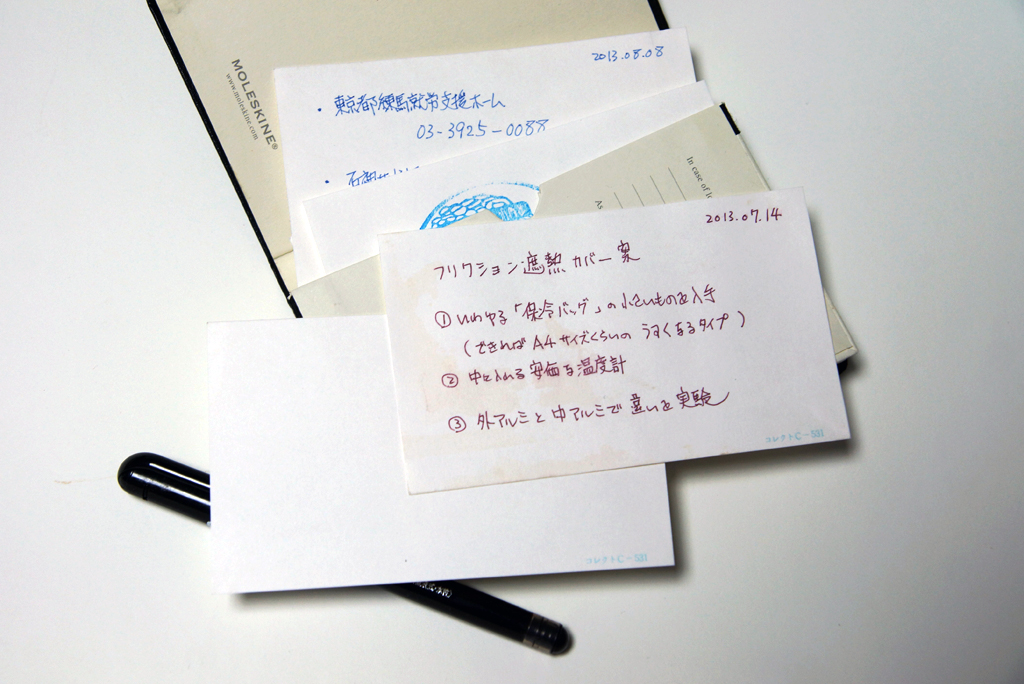 MOLESKINE®
www.moleskine.com
2013.08.08
・東京都練馬就労支援ホーム
03-3925-0088
In case of l
As
2013.07.14
フリクション遮熱カバー案
①いわゆる「保冷バッグ」の小さいものを入手
(できればA4サイズくらいのうすくなるタイプ)
②中に入れる安価な温度計
③外アルミと中アルミで違いを実験
コレクトC-531
コレクトC-531